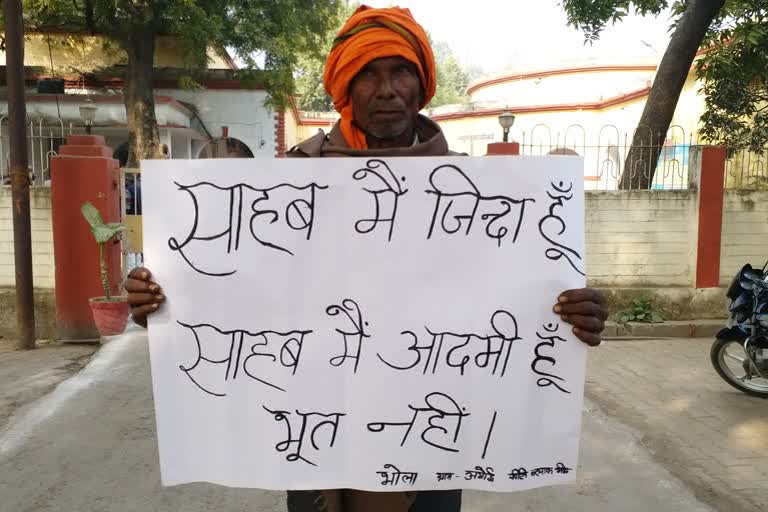 साहब मैं जिन्दा हूँ
साहब मैं आदमी हूँ
भूत नहीं।
भोला ग्राम-